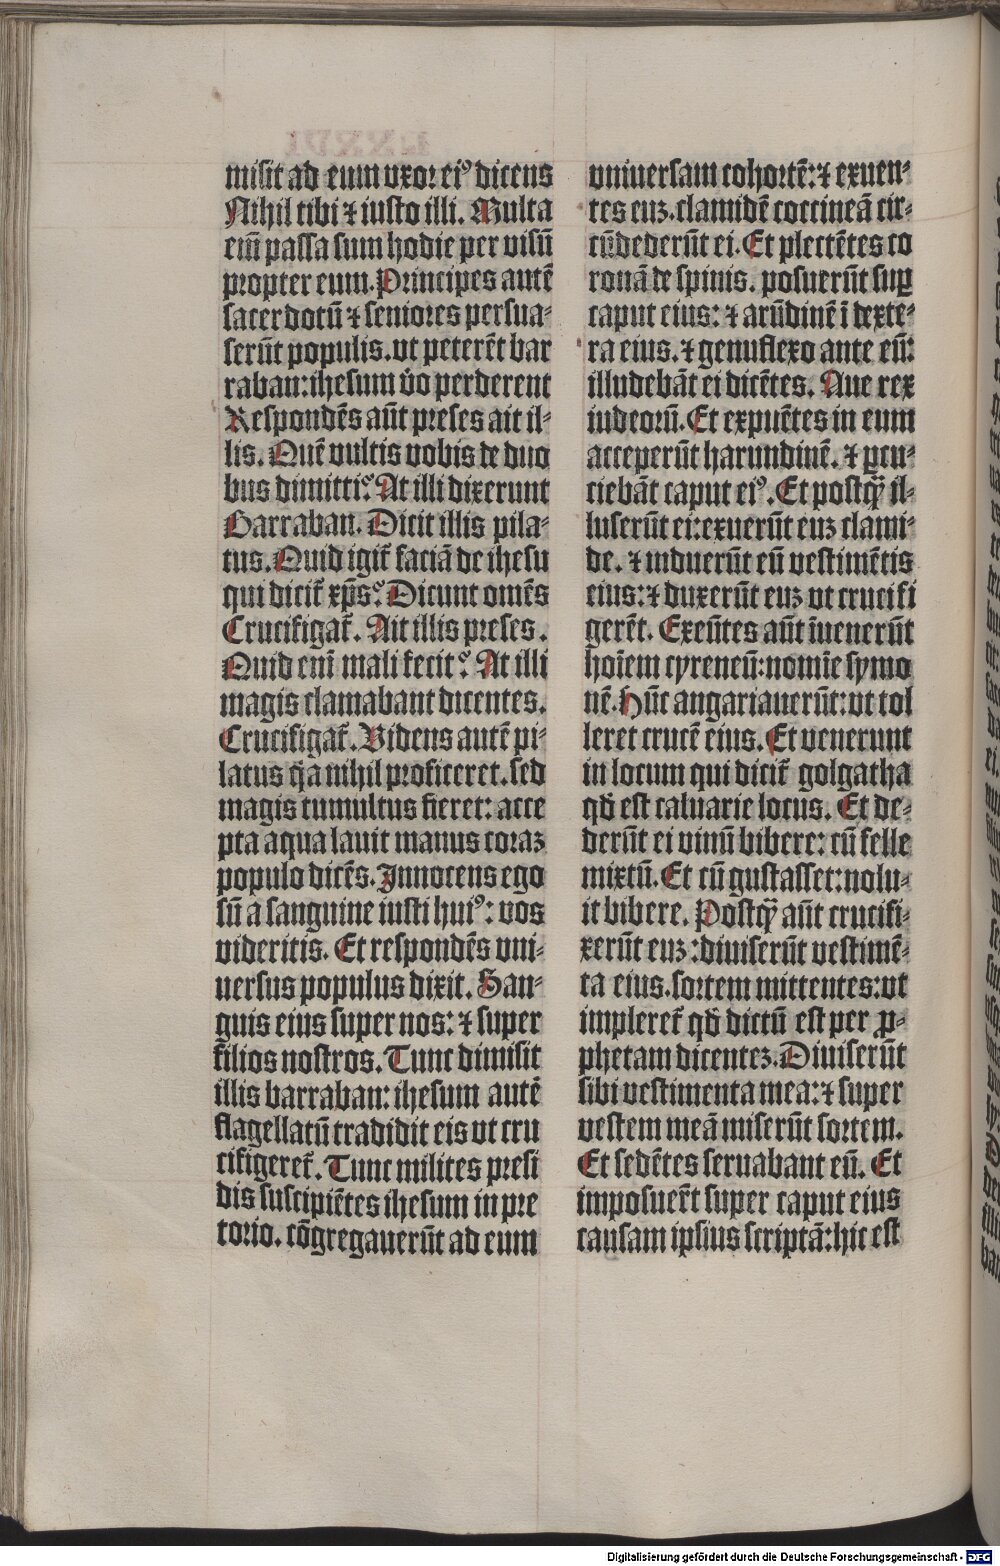 misit ad eum vxor ei⁹ dicens
Nihil tibi ⁊ iusto illi. Multa
em̄ passa sum hodie per visū
propter eum. Principes autē
sacerdotū ⁊ seniores persua-
serūt populis. vt peterēt bar
raban: ihesum v̄o perderent
Respondēs aūt preses ait il-
lis. Quē vultis vobis de duo
bus dimitti? At illi dixerunt
Barraban. Dicit illis pila-
tus. Quid igit̄ faciā de ihesu
qui dicit̄ xp̄s? Dicunt omēs
Crucifigat̄. Ait illis preses.
Quid eni mali fecit? At illi
magis clamabant dicentes.
Crucifigat̄. Videns autē pi-
latus q̄a nihil proficeret. sed
magis tumultus fieret: acce
pta aqua lauit manus coraꝫ
populo dicēs. Innocens ego
sū a sanguine iusti hui⁹: vos
videritis. Et respondēs vni-
uersus populus dixit. San-
guis eius super nos: ⁊ super
filios nostros. Tunc dimisit
illis barraban: ihesum autē
flagellatū tradidit eis vt cru
cifigeret̄. Tunc milites presi
dis suscipiētes ihesum in pre
torio. cōgregauerūt ad eum
vniuersam cohortē: ⁊ exuen-
tes euꝫ. clamidē coccineā cir-
cūdederūt ei. Et plectētes co
ronā de spinis. posuerūt suꝑ
caput eius: ⁊ arūdinē ī dexte-
ra eius. ⁊ genuflexo ante eū:
illudebāt ei dicētes. Aue rex
iudeorū. Et expuētes in eum
acceperūt harundinē. ⁊ ꝑcu-
ciebāt caput ei⁹. Et postq̄ il-
luserūt ei: exuerūt euꝫ clami-
de. ⁊ induerūt eū vestimētis
eius: ⁊ duxerūt euꝫ vt crucifi
gerēt. Exeūtes aūt īuenerūt
hoīem cyreneū: nomīe symo
nē. Hūc angariauerūt: vt tol
leret crucē eius. Et venerunt
in locum qui dicit̄ golgatha
qđ est caluarie locus. Et de-
derūt ei vinū bibere: cū felle
mixtū. Et cū gustasset: nolu-
it bibere. Postq̄ aūt crucifi-
xerūt euꝫ: diuiserūt vestimē-
ta eius. sortem mittentes: vt
impleret̄ qđ dictū est per ꝓ-
phetam dicenteꝫ. Diuiserūt
sibi vestimenta mea: ⁊ super
vestem meā miserūt sortem.
Et sedētes seruabant eū. Et
imposuer̄t super caput eius
causam ipsius scriptā: hic est
Digitalisierung gefördert durch die Deutsche Forschungsgemeinschaft - DFG